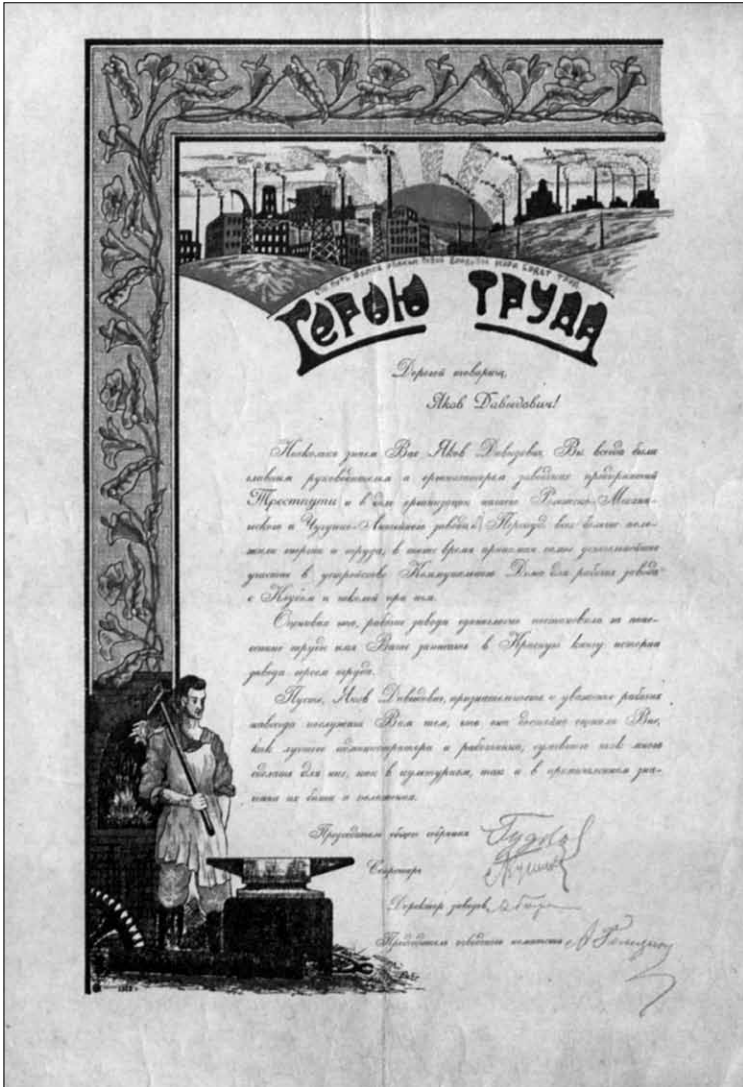 ГЕРОЮ ТРУДА
Дорогой товарищ,
Яков Давидович!
Насколько знаем Вас, Яков Давидович, Вы всегда были
главным руководителем и организатором заводских предприятий
и в деле организации нашего Ремонтно-Механи-
ческого и Чугунно-Литейного заводов. Вами было поло-
жено энергии и труда, в тоже время принимая самое
участие в устройстве Коммунального Дома для рабочих завода
с Клубом и школой при нем.
Оценивая это, рабочие завода единогласно постановили за поне-
сенные труды имя Ваше записать в Красную книгу истории
завода героем труда.
Пусть, Яков Давидович, признательность и уважение рабочих
навсегда послужит Вам тем, что они достойно оценили Вас,
как лучшего администратора и работника, сумевшего так много
сделать для них, как в культурном, так и в
их быта и положения.
Председатель общего собрания
Секретарь
Директор заводов
Председатель заводского комитета